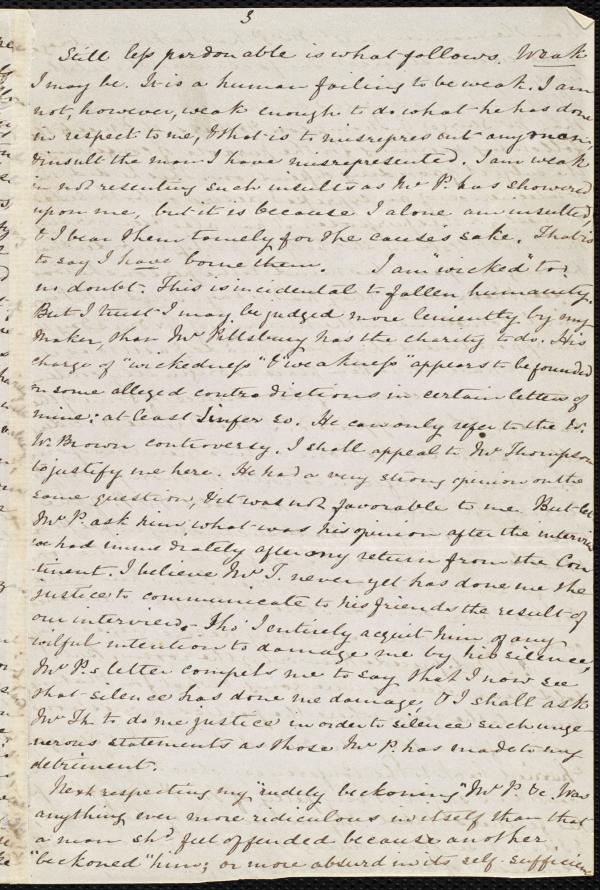 3
Still less pardonable is what follows. Weak
I may be. It is a human failing to be weak. I am
not, however, weak enough to do what he has done
in respect to me, & that is to misrepresent any man,
& insult the man I have misrepresented. I am weak
in not resenting such insults as Mr P. has showered
upon me, but it is because I alone am insulted
& I bear them tamely for the cause's sake. That is
to say I have borne them. I am "wicked" too
no doubt. This is incidental to fallen humanity.
But I trust I may be judged more leniently by my
Maker, than Mr Pillsbury has the charity to do. His
charge of "wickedness" & "weakness" appears to be founded
on some alleged contradictions in certain letters of
mine: at least I infer so. He can only refer to the Ev.
W. Brown controversy. I shall appeal to Mr Thompson
to justify me here. He had a very strong opinion on the
same question, & it was not favorable to me. But let
Mr P. ask him, what was his opinion after the interview
we had immediately after my return from the Con
tinent. I believe Mr T. never yet has done me the
justice to communicate to his friends the result of
our interview. Tho' I entirely acquit him of any
wilful intention to damage me by his silence,
Mr P.s letter compels me to say that I now see
that silence has done me damage, & I shall ask
Mr Th. to do me justice in order to silence such unge
nerous statements as those Mr P. has made to my
detriment.
Next respecting my "rudely beckoning" Mr P. &c. Was
anything ever more ridiculous in itself than that
a man shd. feel offended because another
"beckoned" him; or more absurd in its self-sufficien